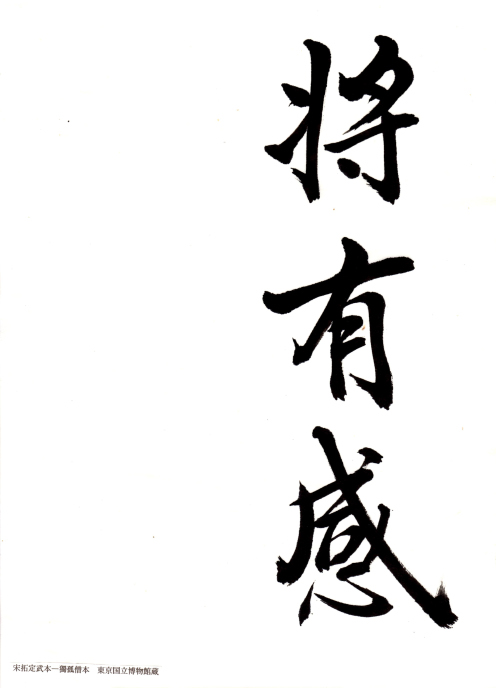 将有感
宋拓定武本—獨孤僧本　東京国立博物館蔵